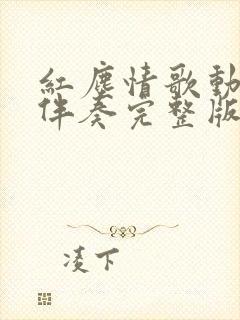 紅塵情歌動
伴奏完整版
凌下